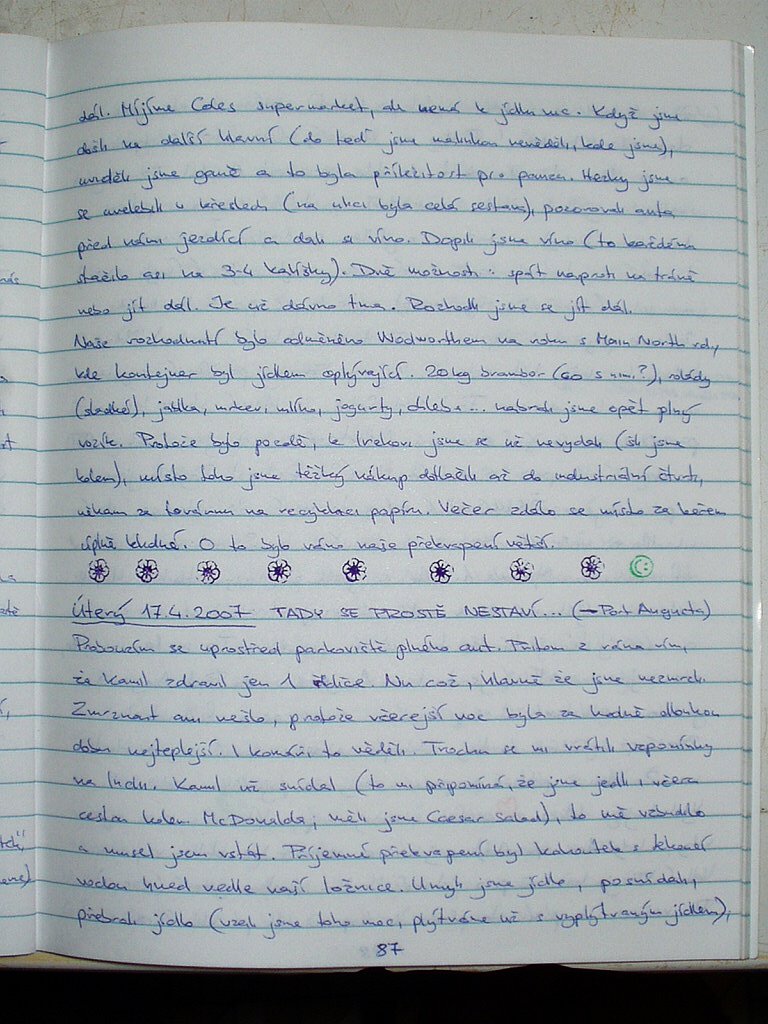 dál. Míjíme Coles supermarket, ale nemá k jídlu nic. Když jsme
došli na další hlavní (do teď jsme malinkou nevěděli, kde jsme),
uviděli jsme gauč a to byla příležitost pro pauzu. Hezky jsme
se uvelebili v křeslech (na ulici byla celá sestava), pozorovali auta
před námi jezdící a dali si víno. Dopili jsme víno (to každému
stačilo asi na 3-4 kalíšky). Dvě možnosti: spát naproti na trávě
nebo jít dál. Je už dávno tma. Rozhodli jsme se jít dál.
Naše rozhodnutí bylo odměněno Woolworthem na rohu s Main North rd,
kde kontejner byl jídlem oplývající. 20kg brambor (co s nimi?), rolády
(sladké), jablka, mrkev, mlíko, jogurty, chleba... nabrali jsme opět plný
vozík. Protože bylo pozdě, k Irekovi jsme se už nevydali (šli jsme
kolem), místo toho jsme těžký nákup dotlačili až do industriální čtvrti,
někam za továrnu na recyklaci papíru. Večer zdálo se místo za keřem
úplně klidné. O to bylo ráno naše překvapení větší.
Úterý 17.4.2007 TADY SE PROSTĚ NESTAVÍ... (→Port Augusta)
Probouzím se uprostřed parkoviště plného aut. Přitom z rána vím,
že Kamil zdravil jen 1 řidiče. Nu což, hlavně že jsme nezmrzli.
Zmrznout ani nešlo, protože včerejší noc byla za hodně dlouhou
dobu nejteplejší. I komáři to věděli. Trochu se mi vrátili vzpomínky
na Indii. Kamil už snídal (to mi připomíná, že jsme jedli i včera
cestou kolem McDonalda, měli jsme Caesar salad), to mě vzbudilo
a musel jsem vstát. Příjemné překvapení byl kohoutek s tekoucí
vodou hned vedle naší ložnice. Umyli jsme jídlo, posnídali,
přebrali jídlo (vzali jsme toho moc, plýtváme už s vyplýtvaným jídlem),
87